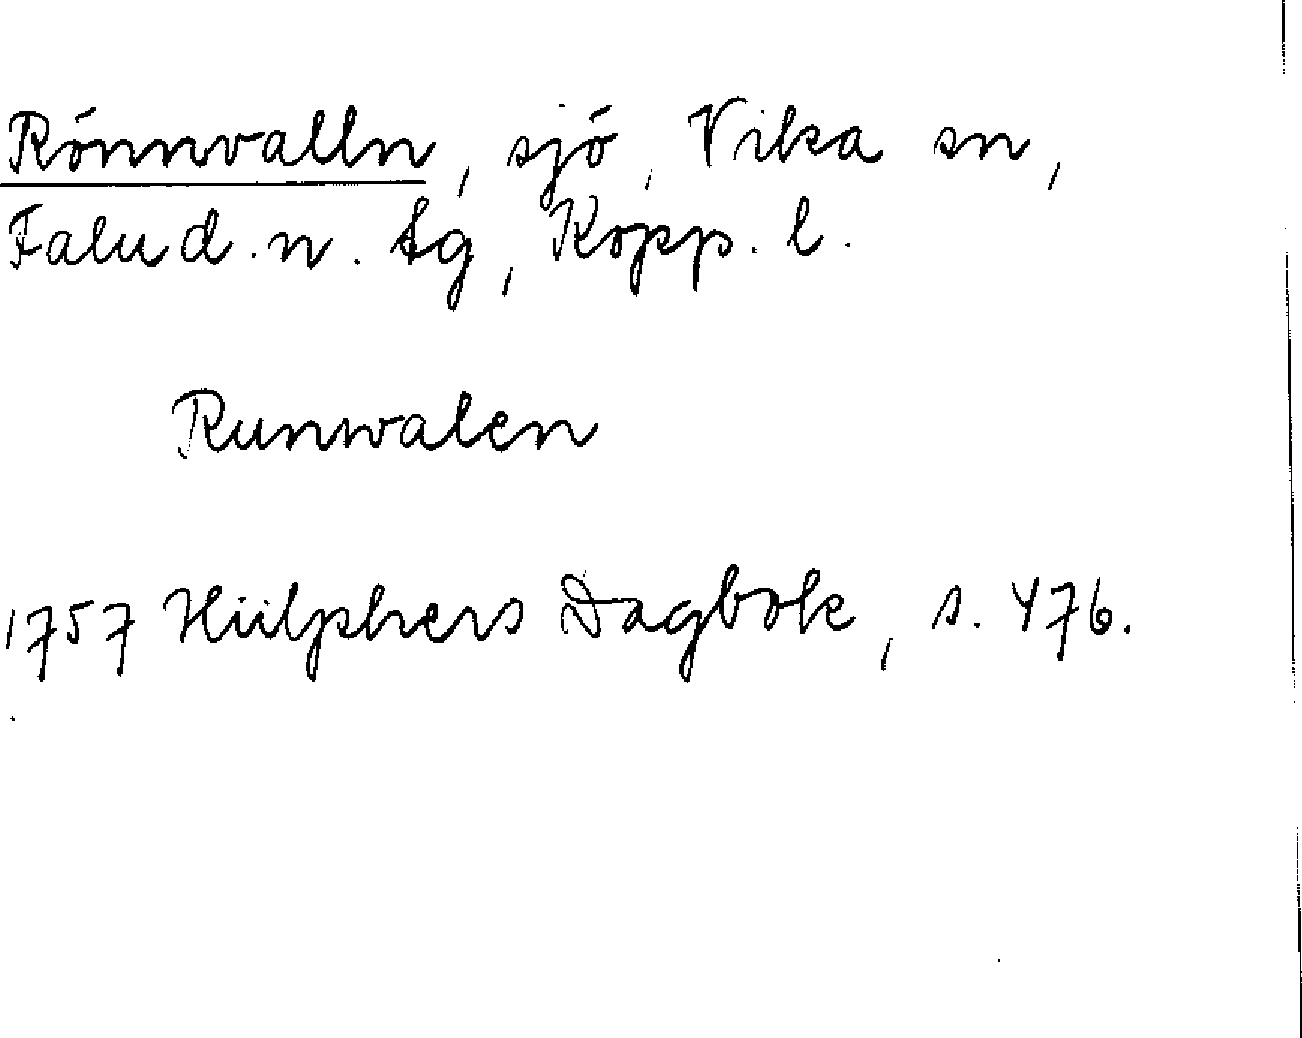 Rönnvalln, sjö, Vika sn,
Falu d. n. tg, Kopp. l.
Runwalen
1757 Hülphers Dagbok, s. 476.